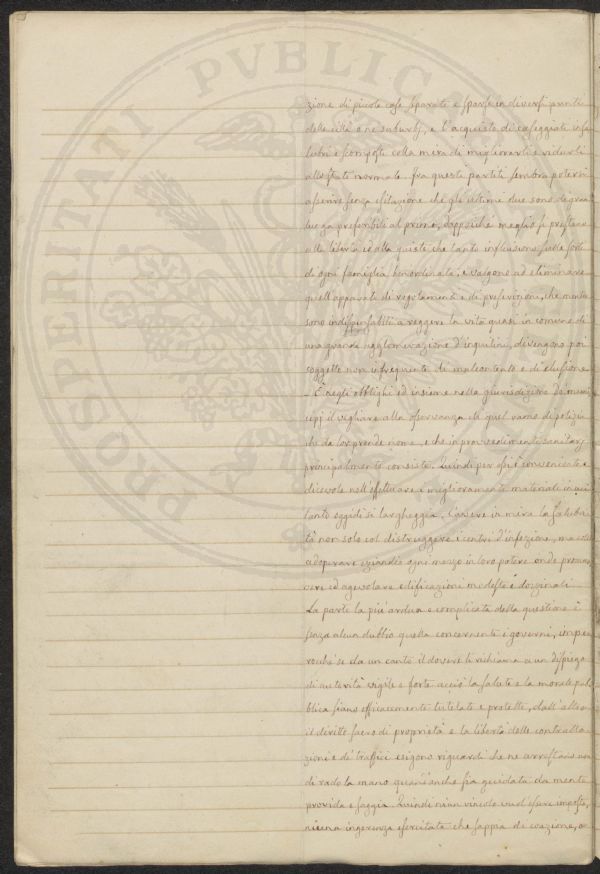 PROSPERITATI PVBLICAE
zione di piccole case separate e sparse in diversi punti
della città o ne' suburbj, e l'acquisto di caseggiati insa
lubri e scomposti colla mira di migliorarli e ridurli
allo stato normale. Fra questi partiti sembra potersi
asserire senza esitazione che gli ultimi due sono di gran
lunga preferibili al primo, dappoiché meglio si prestano
alla libertà ed alla quiete che tanto influiscono sulla sorte
di ogni famiglia benordinata; e valgono ad eliminare
quell'apparato di regolamenti e di prescrizioni, che mentre
sono indispensabili a reggere la vita quasi in comune di
una grande agglomerazione d'inquilini, divengono poi
soggetto non infrequente di malcontento e di elusione.
È negli obblighi ed insieme nella giurisdizione de' muni
cipj il vigilare alla osservanza di quel ramo di polizia
che da lor prende nome, e che in provvedimenti sanitarj
principalmente consiste. Quindi per essi è conveniente e
dicevole nell'effettuare i miglioramenti materiali in cui
tanto oggidì si largheggia, l'avere in mira la salubri
tà non solo col distruggere i centri d'infezione, ma coll'
adoperare eziandio ogni mezzo in loro potere onde promuo
vere ed agevolare edificazioni modeste e dozzinali.
La parte la più ardua e complicata della questione è
senza alcun dubbio quella concernente i governi, impe
rocchè se da un canto il dovere li richiama a un dispiego
di autorità vigile e forte acciò la salute e la morale pub
blica siano efficacemente tutelate e protette, dall'altro
il diritto sacro di proprietà e la libertà delle contratta
zioni e de' traffici esigono riguardi che ne arrestano non
di rado la mano quand'anche sia guidata da mente
provida e saggia. Quindi niun vincolo vuol essere imposto,
niuna ingerenza esercitata che sappia di coazione, o